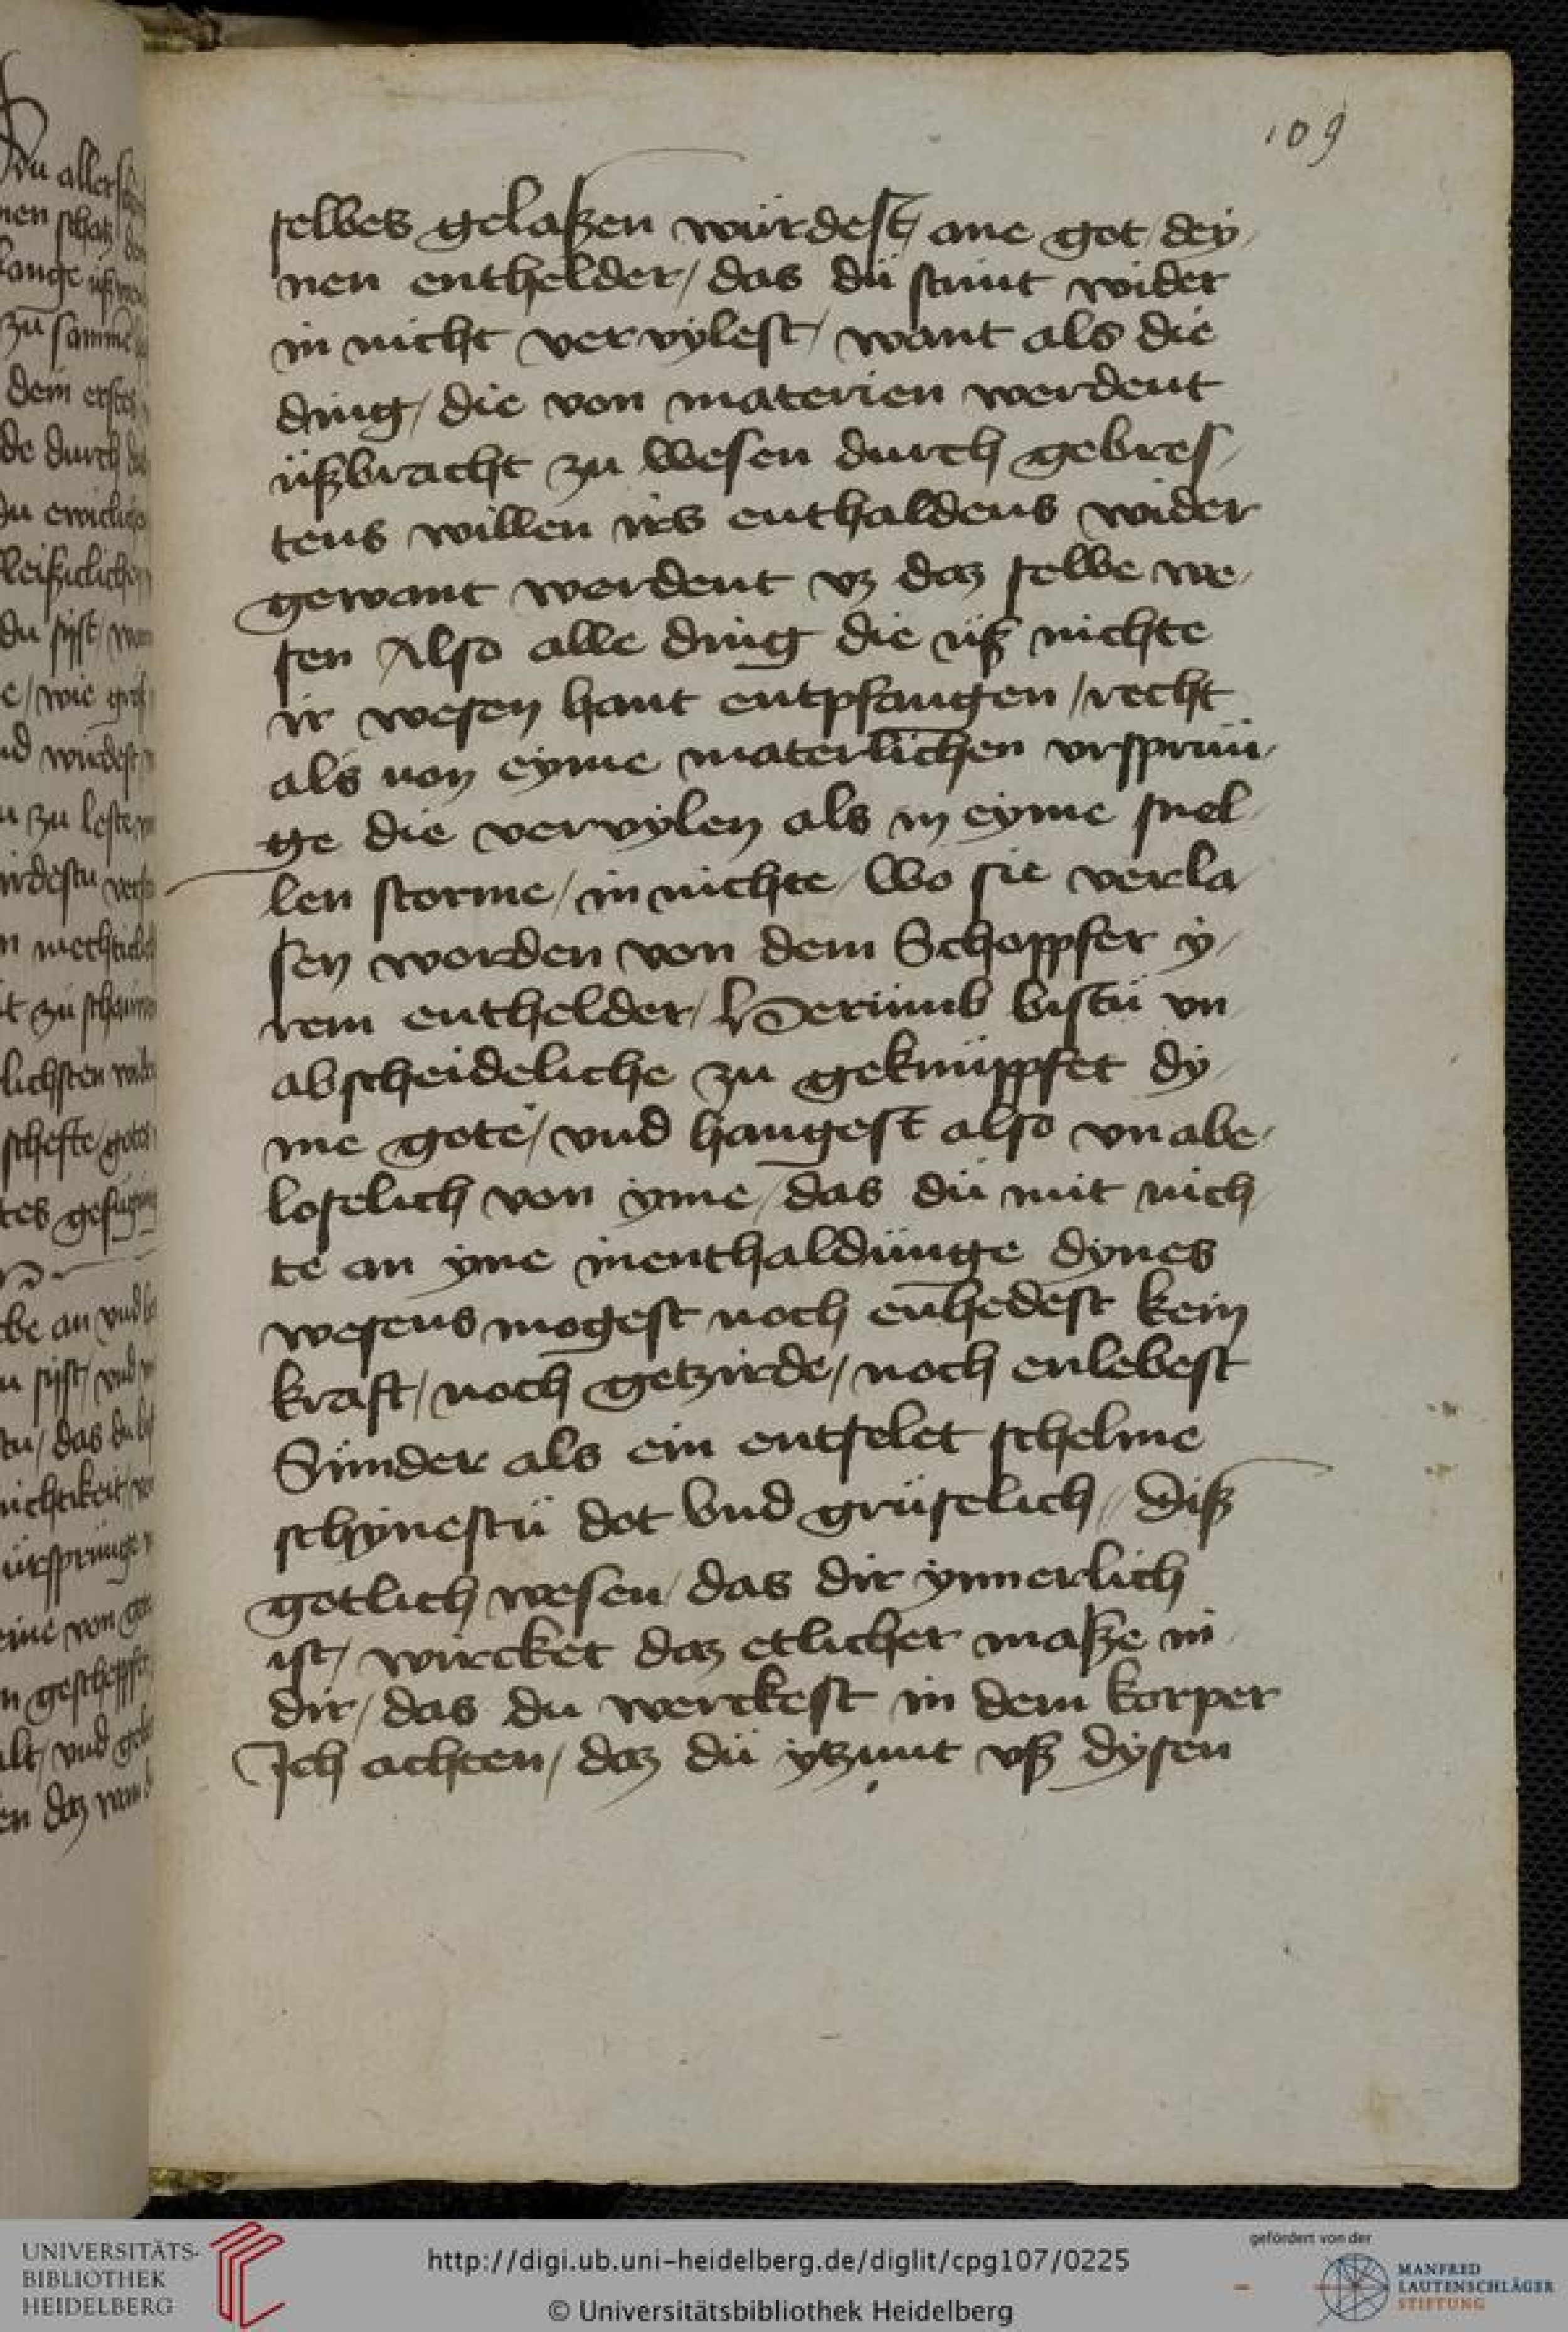 109
selbes gelaßen würdest / ane got / dey /
nen enthelder / das dü stunt wider
in nicht vervylest / want als die
ding / die von materien werdent
üßbracht zu wesen durch gebres /
tens willen irs enthaldens wider
gewant werdent vz daz selbe we /
sen Also alle ding die üß nichte
ir wesen hant entpfangen / recht
als von eyme materlichen vrsprün /
ge die vervylen als in eyme snel
len storme / in nichte / Wo sie verla /
sen worden von dem Schoppfer y /
rem enthelder / Herümb bistü vn
abscheideliche zu geknüppfet dy /
me gote / vnd hangest also vnabe /
loselich von yme / das dü mit nich /
te an yme inenthaldünge dynes
wesens mogest noch enhedest kein
kraft / noch getzirde / noch enlebest
Sunder als ein entselet schelme
schynestü dot vnd grüselich // Diß
gotlich wesen / das dir ynnerlich
ist / würcket daz etlicher maße in
dir / das du werckest in dem korper
Ich achten / daz dü ytzunt vß dysen
UNIVERSITÄTS-
BIBLIOTHEK
HEIDELBERG
http://digi.ub.uni-heidelberg.de/diglit/cpg107/0225
© Universitätsbibliothek Heidelberg
gefördert von der
MANFRED
LAUTENSCHLÄGER
STIFTUNG